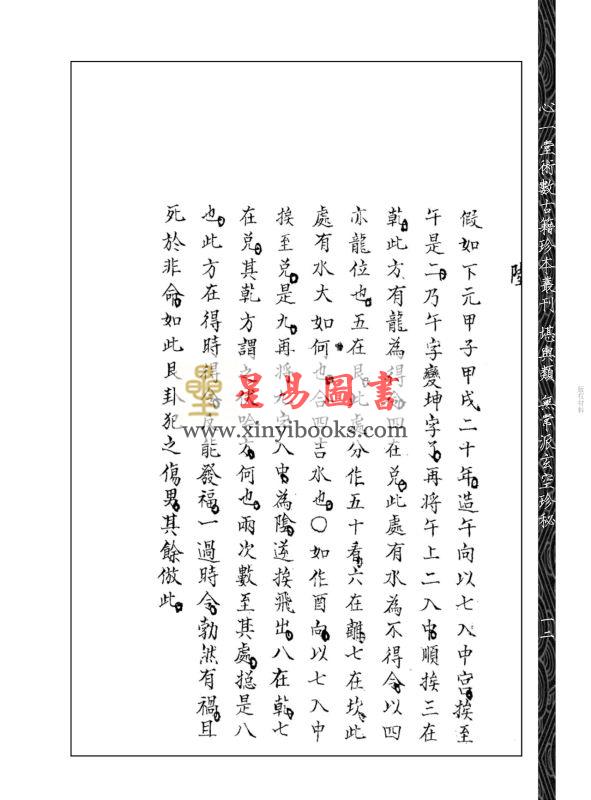 心一堂術數古籍珍本叢刊 堪輿類 無常派玄空珍秘
一二
版权材料
陸
假如下元甲子甲戌二十年造午向以七入中宮挨至
午是二乃午字變坤字了再將午上二入中順挨三在
乾此方有龍為得令四在兌此處有水為不得令以四
亦龍位也五在艮此處分作五十看六在離七在坎此
處有水大如何也合四吉水也〇如作酉向以七入中
挨至兌是九再將九字入中為陰逆挨飛出八在乾七
在兌其乾方謂之伏吟方何也兩次數至其處摠是八
也此方在得時得令反能發福一過時令勃然有禍且
死於非命如此艮卦犯之傷男其餘倣此
星易圖書
www.xinyibooks.com